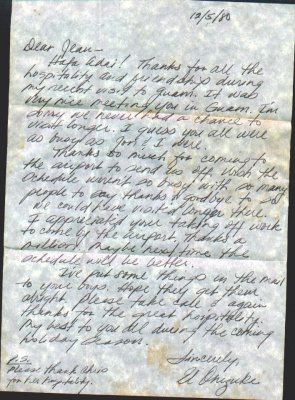 10/5/80
Dear Jean—
Hafa Adai! Thanks for all the
hospitality and friendship during
my recent visit to Guam. It was
very nice meeting you in Guam. I'm
sorry we never had a chance to
visit longer. I guess you all were
as busy as Jon & I were.
Thanks so much for coming to
the airport to send us off. Wish the
schedule weren't so busy with so many
people to say thanks & goodbye to so
we could have visited longer there.
I appreciate your taking off work
to come by the airport, thanks a
million! Maybe next time the
schedule will be better.
I've put some things in the mail
to your boys. Hope they get there
alright. Please take care & again
thanks for the great hospitality.
My best to you all during the coming
holiday season.
Sincerely
El Onizuka
P.S.
Please thank
for her hospitality.